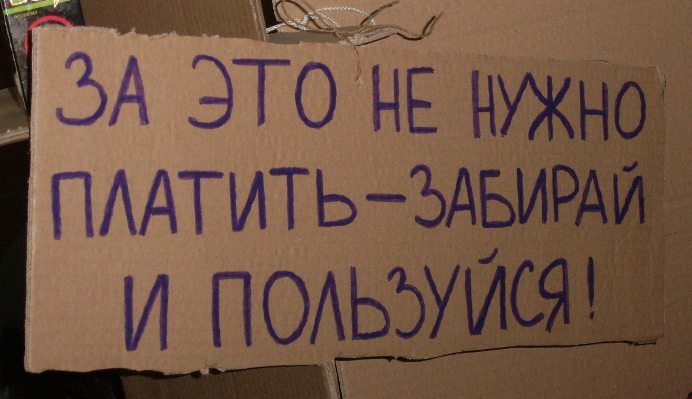 ЗА ЭТО НЕ НУЖНО
ПЛАТИТЬ-ЗАБИРАЙ
И ПОЛЬЗУЙСЯ!